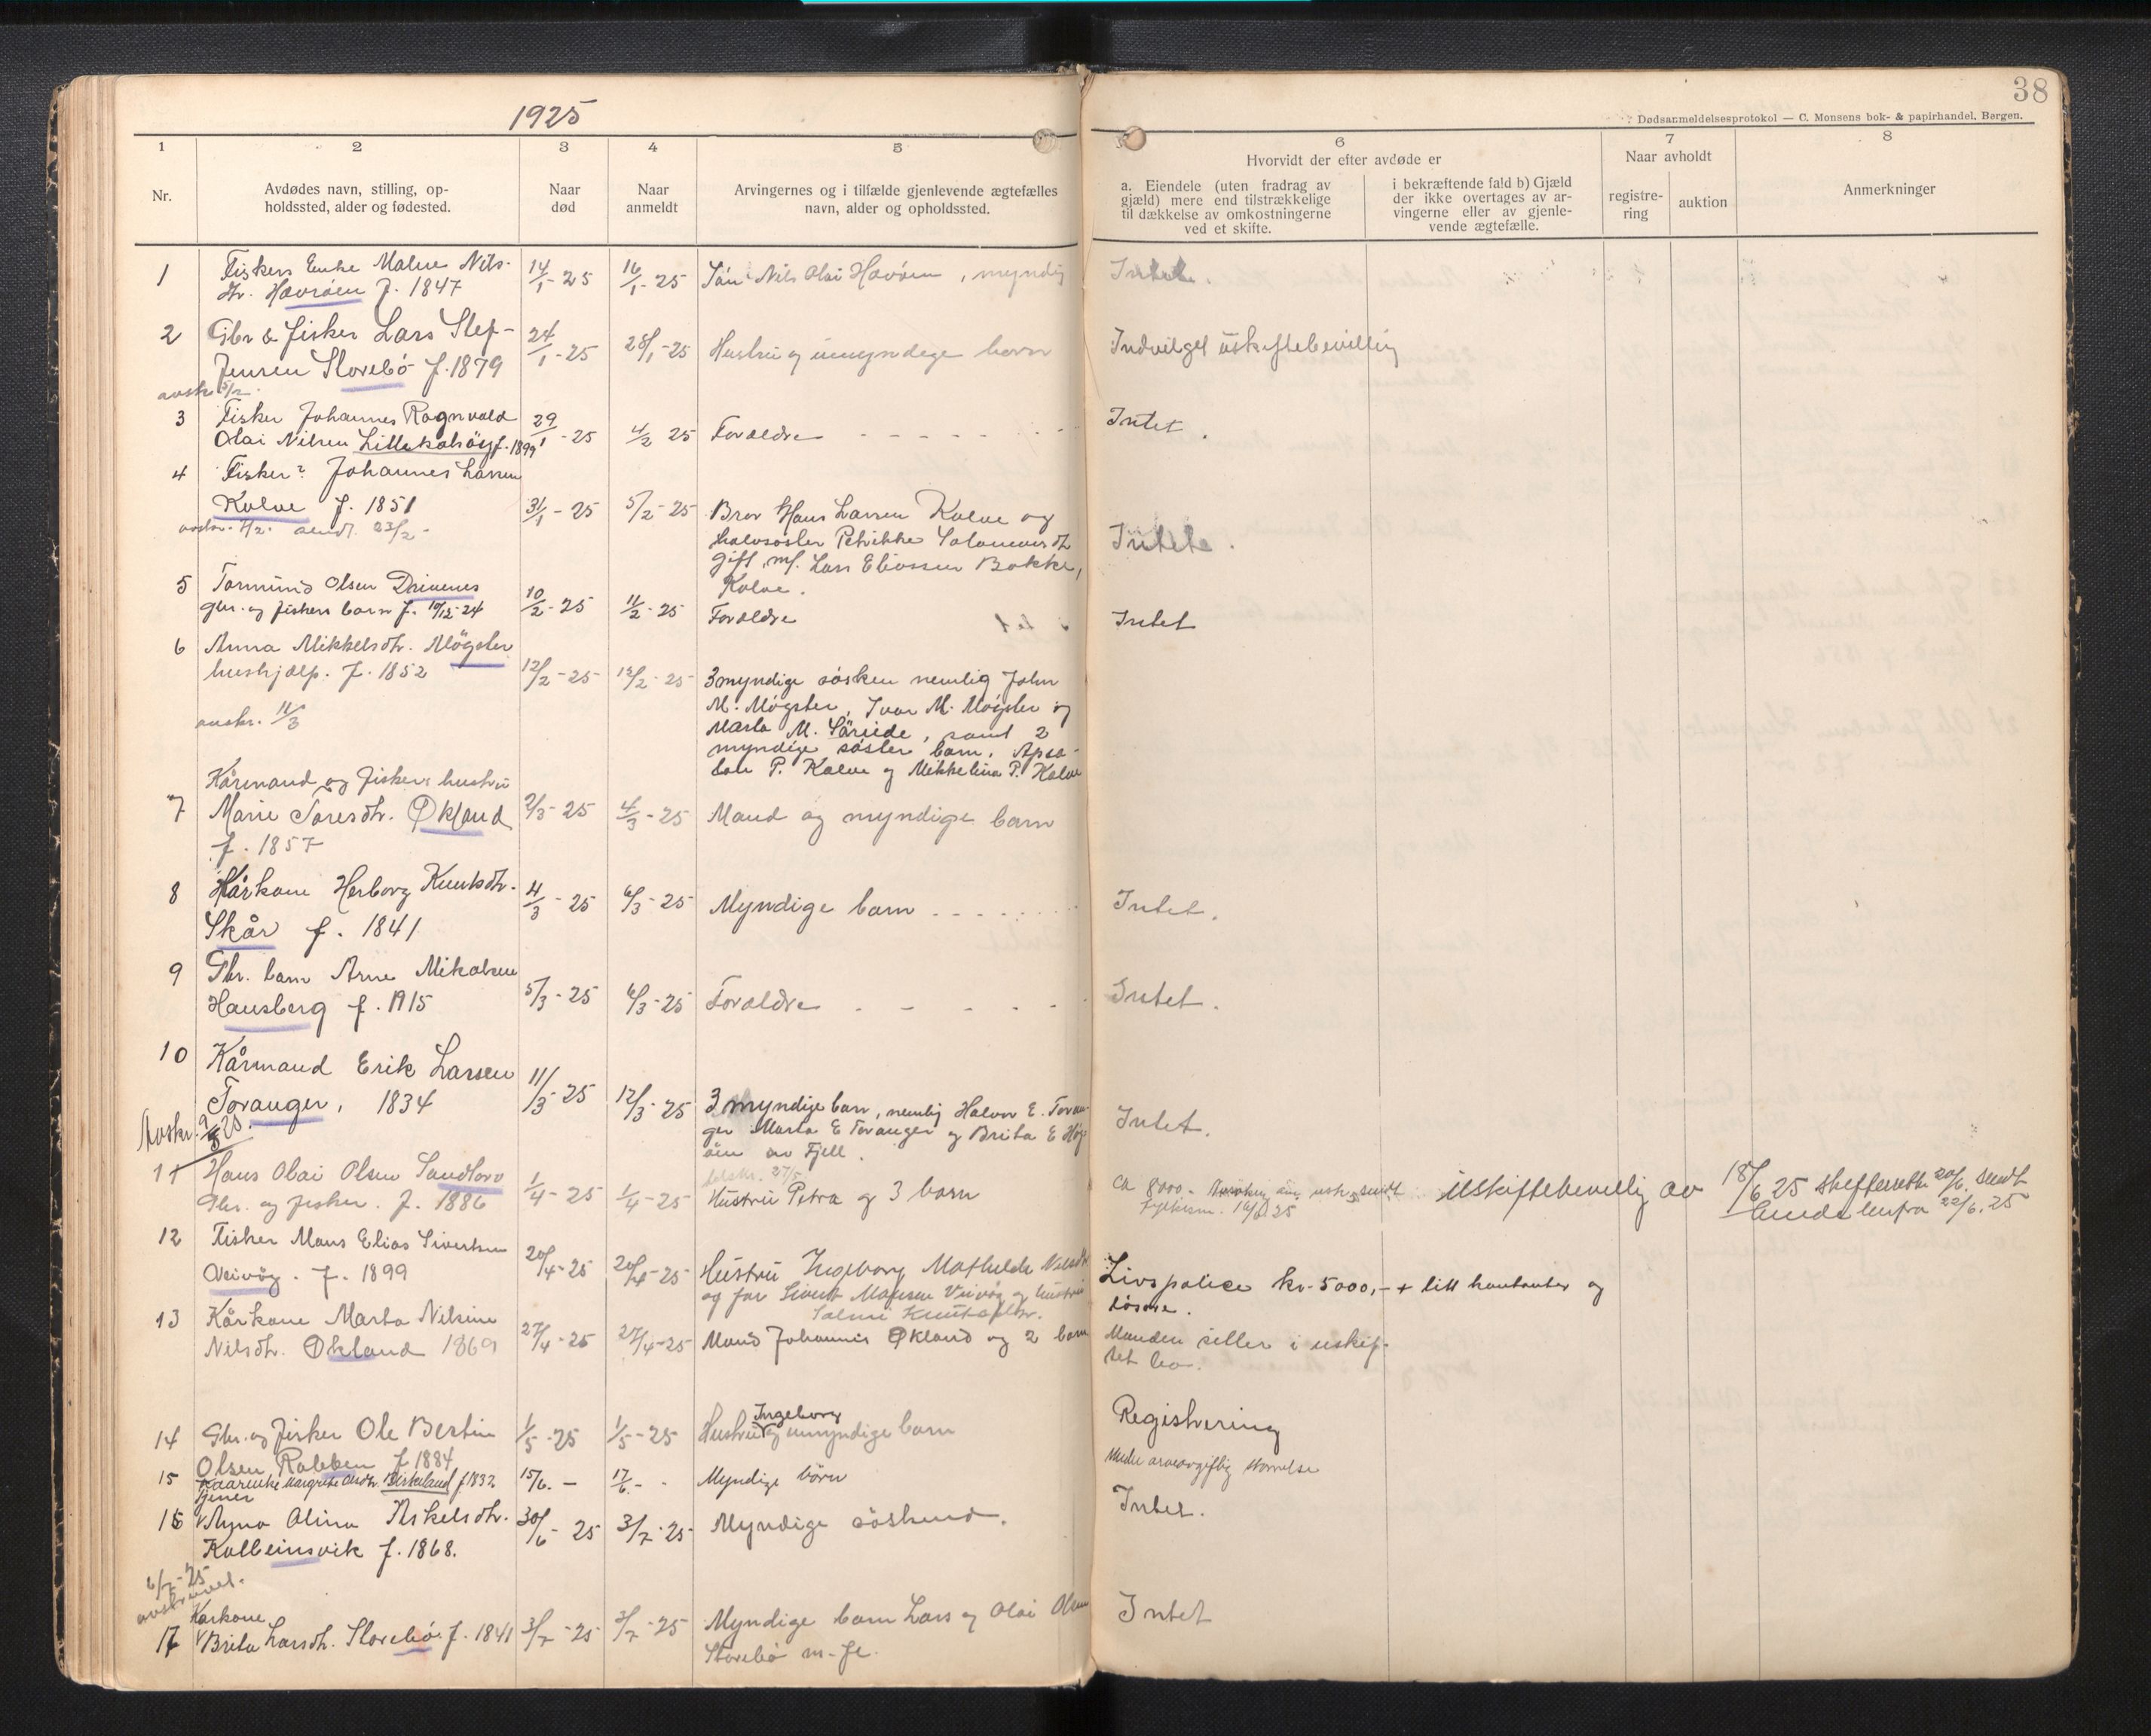 38
1925
Dødsanmeldelsesprotokol — C. Monsens bok- & papirhandel, Bergen.
1
2
3
4
5
6
7
8
Nr.
Avdødes navn, stilling, op-
holdssted, alder og fødested.
Naar
død
Naar
anmeldt
Arvingernes og i tilfælde gjenlevende ægtefælles
navn, alder og opholdssted.
Hvorvidt der efter avdøde er
a. Eiendele (uten fradrag av
gjæld) mere end tilstrækkelige
til dækkelse av omkostningerne
ved et skifte.
i bekræftende fald b) Gjæld
der ikke overtages av ar-
vingerne eller av gjenle-
vende ægtefælle.
Naar avholdt
registre-
ring
auktion
Anmerkninger
1 Fiskers Enke Malne Nils-
dr. Havrøen f. 1847
14/1-25 16/1-25 Sön Nils Olai Havöen, myndig
Intet.
2 Gbr & fisker Lars Stef-
Jensen Storebö f. 1879
24/1-25 28/1-25 Hustru og umyndige barn
Indvilget uskiftebevilling
avskr. 5/2
3 Fisker Johannes Ragnvald
Olai Nilsen Lillekalsöy f. 1899
29/1-25 4/2 25 Foreldre
Intet.
4 Fisker? Johannes Larsen
Kalve f. 1851
31/1-25 5/2-25 Bror Hans Larsen Kalve og
halvsöster Petrikke Salomonsdt
gift m/ Lars Eliassen Bakke,
Kalve.
Intet.
5 Tormund Olsen Drivenes
gbr. og fiskers barn f. 10/12-24
10/2-25 11/2-25 Foreldre
Intet
6 Anna Mikkelsdtr. Mögster
hushjælp. f. 1852
12/2-25 12/2-25 3 myndige søsken nemlig John
M. Mögster, Ivar M. Mögster og
Marta M. Säreide, samt 2
myndige söster barn, Apso-
lon P. Kalve og Mikkelina P. Kalve
avskr. 11/3
Kårmand og fiskers hustru
7 Marie Taresdtr. Økland
f. 1857
2/3-25 4/3-25 Mand og myndige barn
8 Kårkone Herborg Knutsdtr.
Skår f. 1841
4/3-25 6/3-25 Myndige barn
Intet.
9 Gbr. barn Arne Mikalsen
Hausberg f. 1915
5/3-25 6/3-25 Foreldre
Intet.
10 Kårmand Erik Larsen
Toranger, 1834
11/3-25 12/3-25 3 myndige barn, nemlig Halvor E. Toran-
ger Marta E Toranger og Brita E Høy-
öen av Fjell.
Intet.
11 Hans Olai Olsen Sandtorv
Gbr. og fisker. f. 1886
1/4-25 1/4-25 Hustru Petra og 3 barn
ca 8000 -
Uskiftebevillig av 18/6 25
22/6.25
12 Fisker Mons Elias Sivertsen
Veivåg. f. 1899
20/4-25 20/4-25 Hustru Ingeborg Mathilde Nilsdt
og far Sivert Monsen Veivåg og hustru
Salmi Knutsdtr.
Livspolice kr. 5000,- + litt kontanter og
lösöre.
13 Kårkone Marta Nilsine
Nilsdtr. Økland 1869
27/4-25 27/4-25 Mand Johannes Økland og 2 barn
Manden sitter i uskif-
tet bo.
14 Gbr. og fisker Ole Bertin
Olsen Rabben f 1884
1/5-25 1/5-25 Hustru Ingeborg og umyndige barn
Registrering
15 Kaarenke Margrete Olsdtr. Birkeland f. 1832
15/6. - 17/6. - Myndige börn
Under arveavgiftig størrelse
16 Tjener Anna Olina Askelsdtr.
Kolbeinsvik f. 1868.
30/6-25 3/7-25 Myndige söskend.
Intet.
6/7-25
17 Karkone
Brita Larsdt. Storebö f. 1841
3/7-25 3/7-25 Myndige barn Lars og Olai Olsen
Storebö m. fl.
Intet